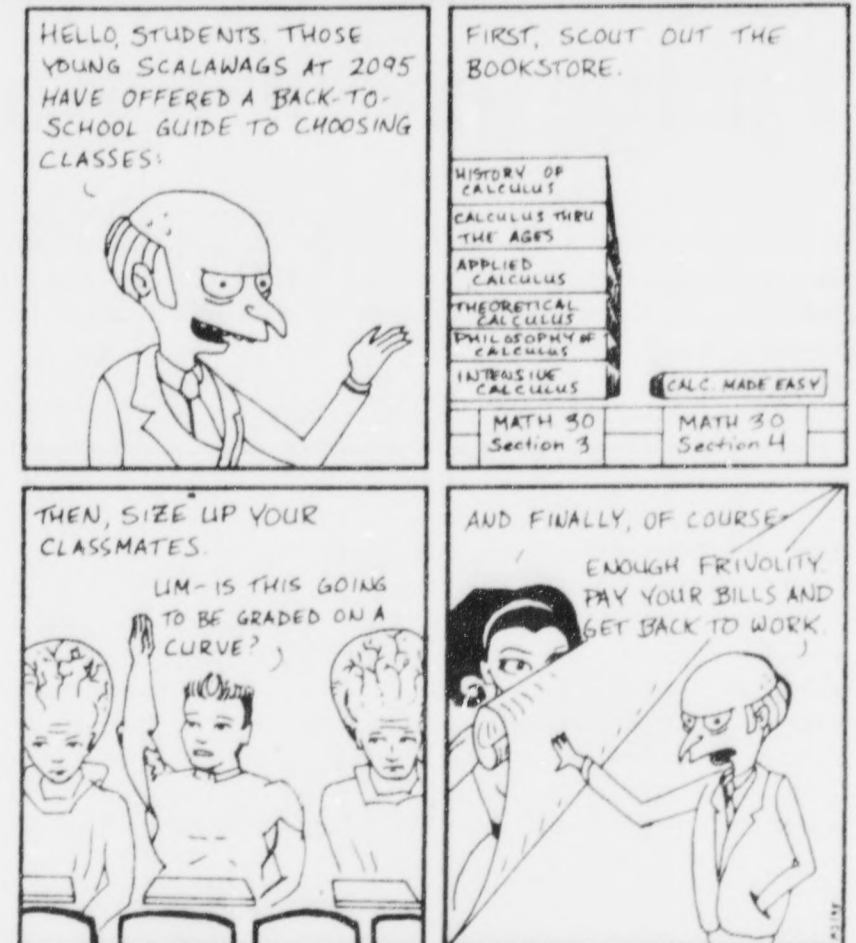 HELLO, STUDENTS. THOSE
YOUNG SCALAWAGS AT 2095
HAVE OFFERED A BACK-TO-
SCHOOL GUIDE TO CHOOSING
CLASSES:
FIRST, SCOUT OUT THE
BOOKSTORE.
HISTORY OF
CALCULUS
CALCULUS THRU
THE AGES
APPLIED
CALCULUS
THEORETICAL
CALCULUS
PHILOSOPHY OF
CALCULUS
INTENSIVE
CALCULUS
CALC. MADE EASY
MATH 30
Section 3
MATH 30
Section 4
THEN, SIZE UP YOUR
CLASSMATES.
UM- IS THIS GOING
TO BE GRADED ON A
CURVE?
AND FINALLY, OF COURSE-
ENOUGH FRIVOLITY.
PAY YOUR BILLS AND
GET BACK TO WORK.